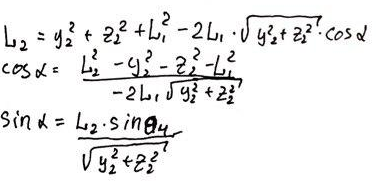 L₂ = y₂² + z₂² + L₁² - 2L₁ · √(y₂² + z₂²) · cosα
cosα = (L₂² - y₂² - z₂² - L₁²) / (-2L₁√(y₂² + z₂²))
sinα = (L₂ · sinθ₄) / √(y₂² + z₂²)